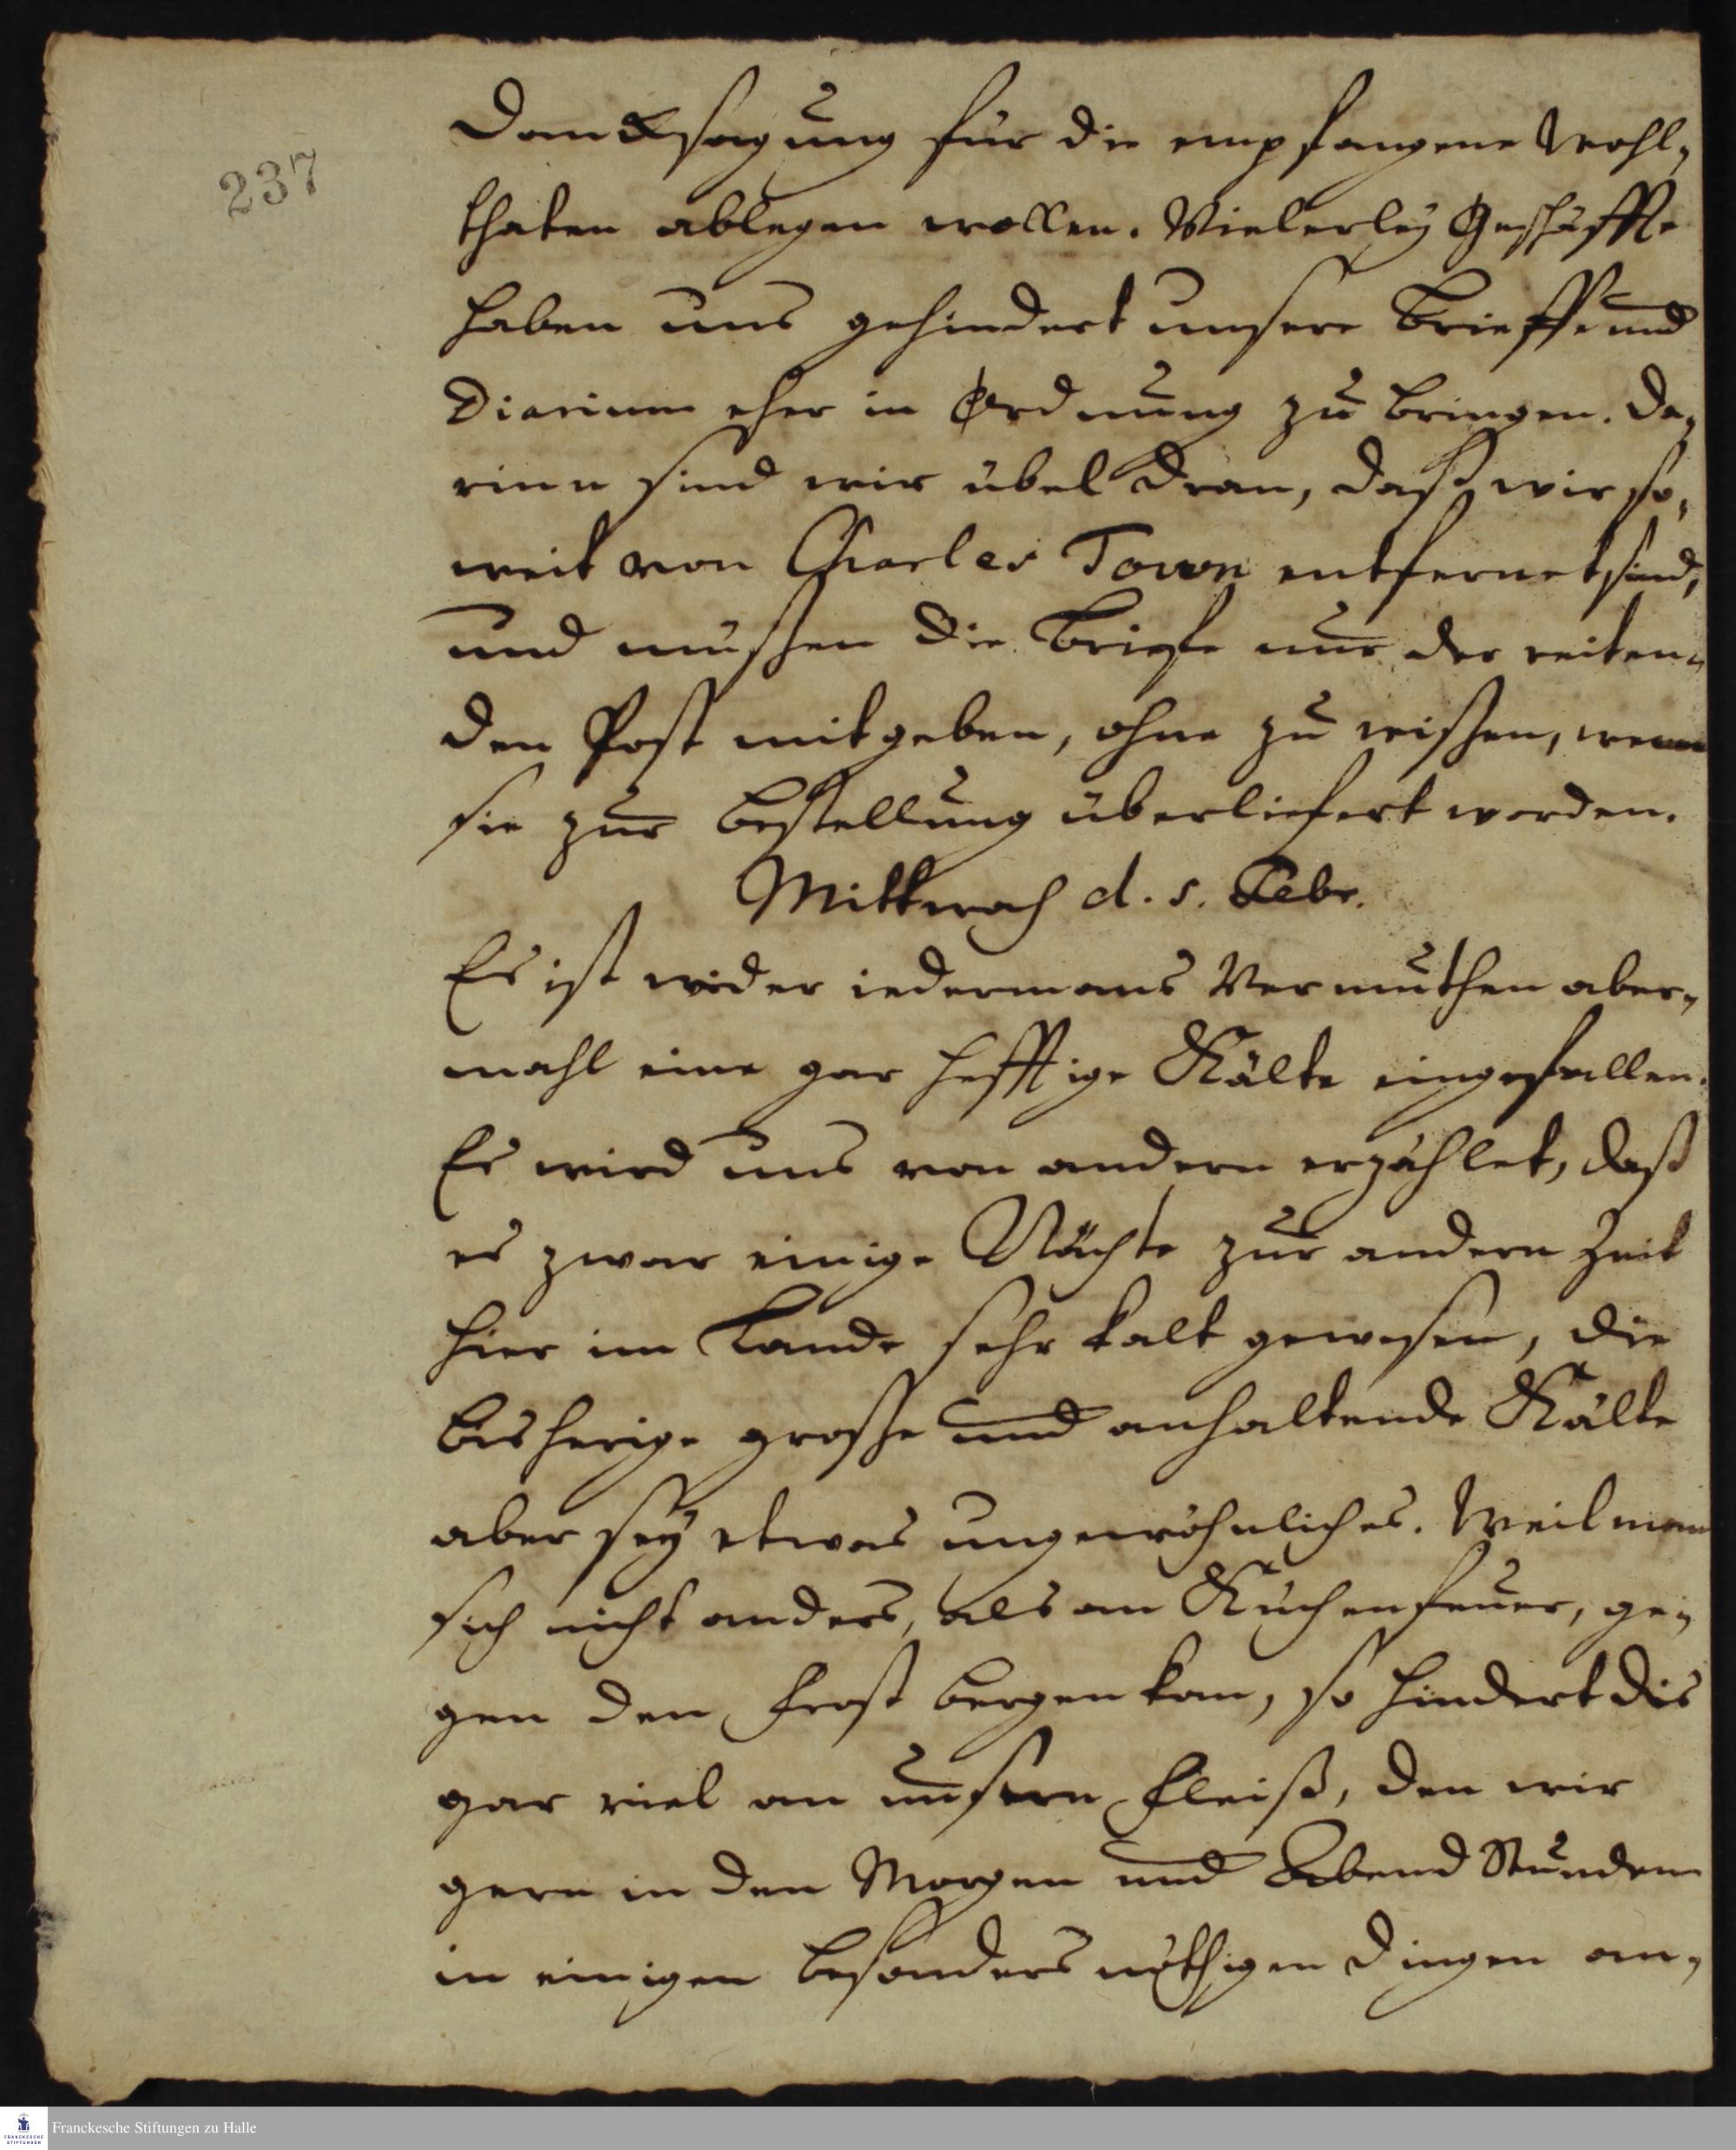 237
Dancksagung für die empfangene Wohl-
thaten ablegen wollen. Vielerley Geschäffte
haben uns gehindert unsere Brieffe und
Diarium eher in Ordnung zu bringen. Da-
rinn sind wir übel dran, daß wir so-
weit von Charles Town entfernet sind,
und mußen die Briefe nur der reiten-
den Post mitgeben, ohne zu wißen, wenn
sie zur Bestellung überliefert worden.
Mittwoch d. 5. Febr.
Es ist wider iedermans Vermuthen aber-
mahl eine gar hefftige Kälte eingefallen.
Es wird uns von andern erzählet, daß
es zwar einige Nächte zur andern Zeit
hier im Lande sehr kalt gewesen, die
bisherige große und anhaltende Kälte
aber sey etwas ungewöhnliches. Weil man
sich nicht anders, als am Küchenfeuer, ge-
gen den Frost bergen kan, so hindert dis
gar viel an unsern Fleiß, den wir
gern in den Morgen und Abend Stunden
in einigen besonders nöthigen Dingen an-
Franckesche Stiftungen zu Halle
FRANCKESCHE
STIFTUNGEN